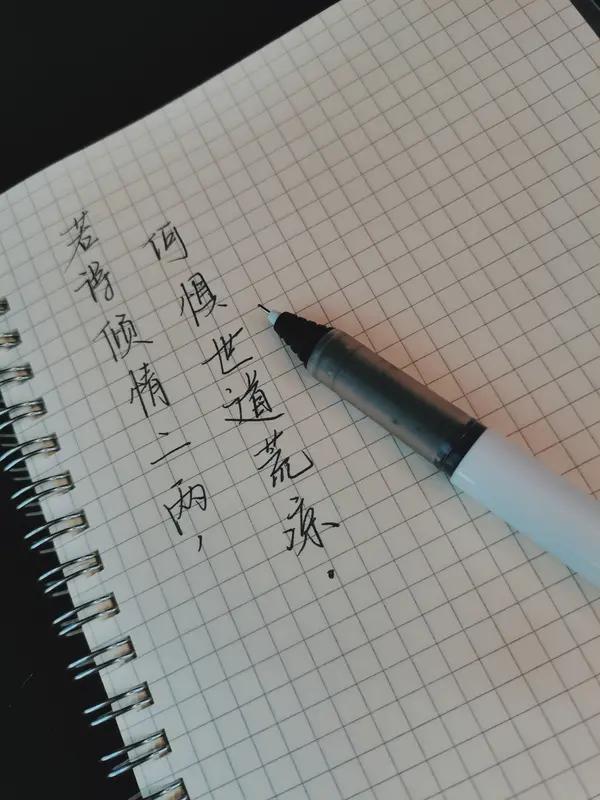 若得倾情二两，
何惧世道荒凉.